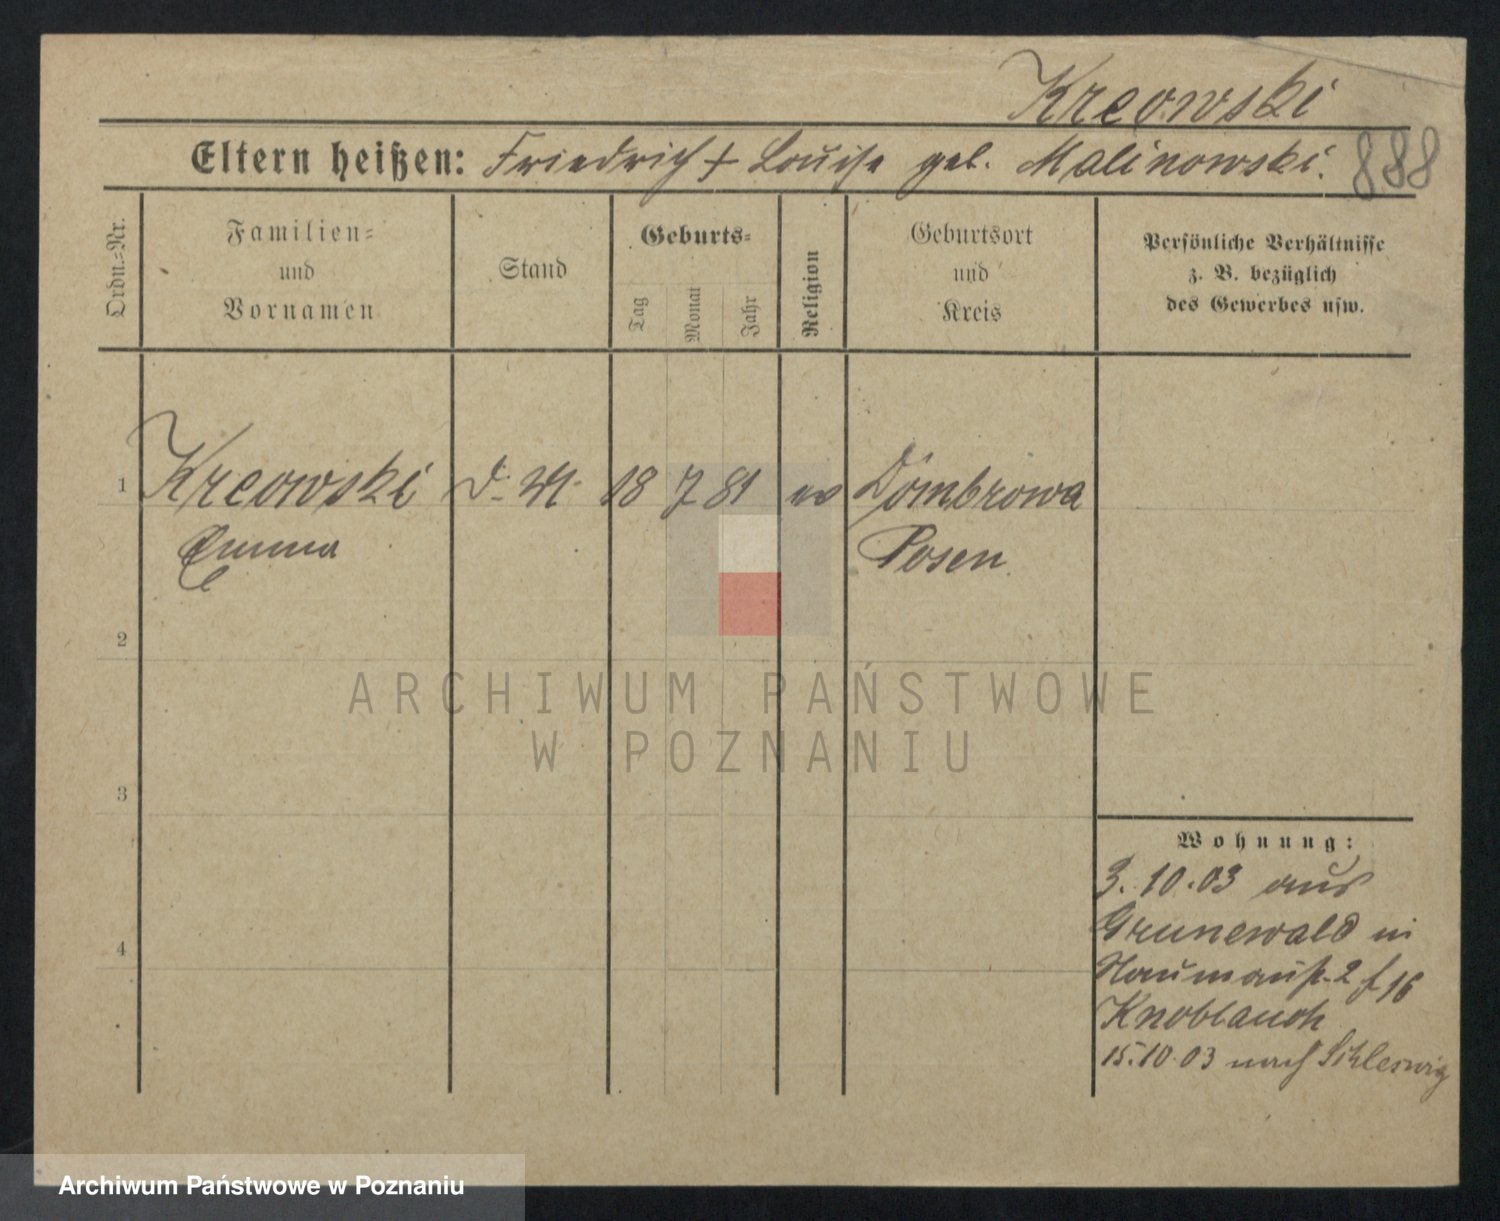 Kreowski
Eltern heißen: Friedrich + Louise geb. Malinowski. 888
Ordn.-Nr.
Familien-
und
Vornamen
Stand
Geburts-
Tag
Monat
Jahr
Religion
Geburtsort
und
Kreis
Persönliche Verhältnisse
z. B. bezüglich
des Gewerbes usw.
1 Kreowski d. M. 18 7 81 ev Dombrowa
Emma Posen.
2
ARCHIWUM PAŃSTWOWE
W POZNANIU
3
Wohnung:
3.10.03 aus
Grunewald in
Naumannstr. 2 f 16
Knoblauch
15.10.03 nach Schleswig
4
Archiwum Państwowe w Poznaniu